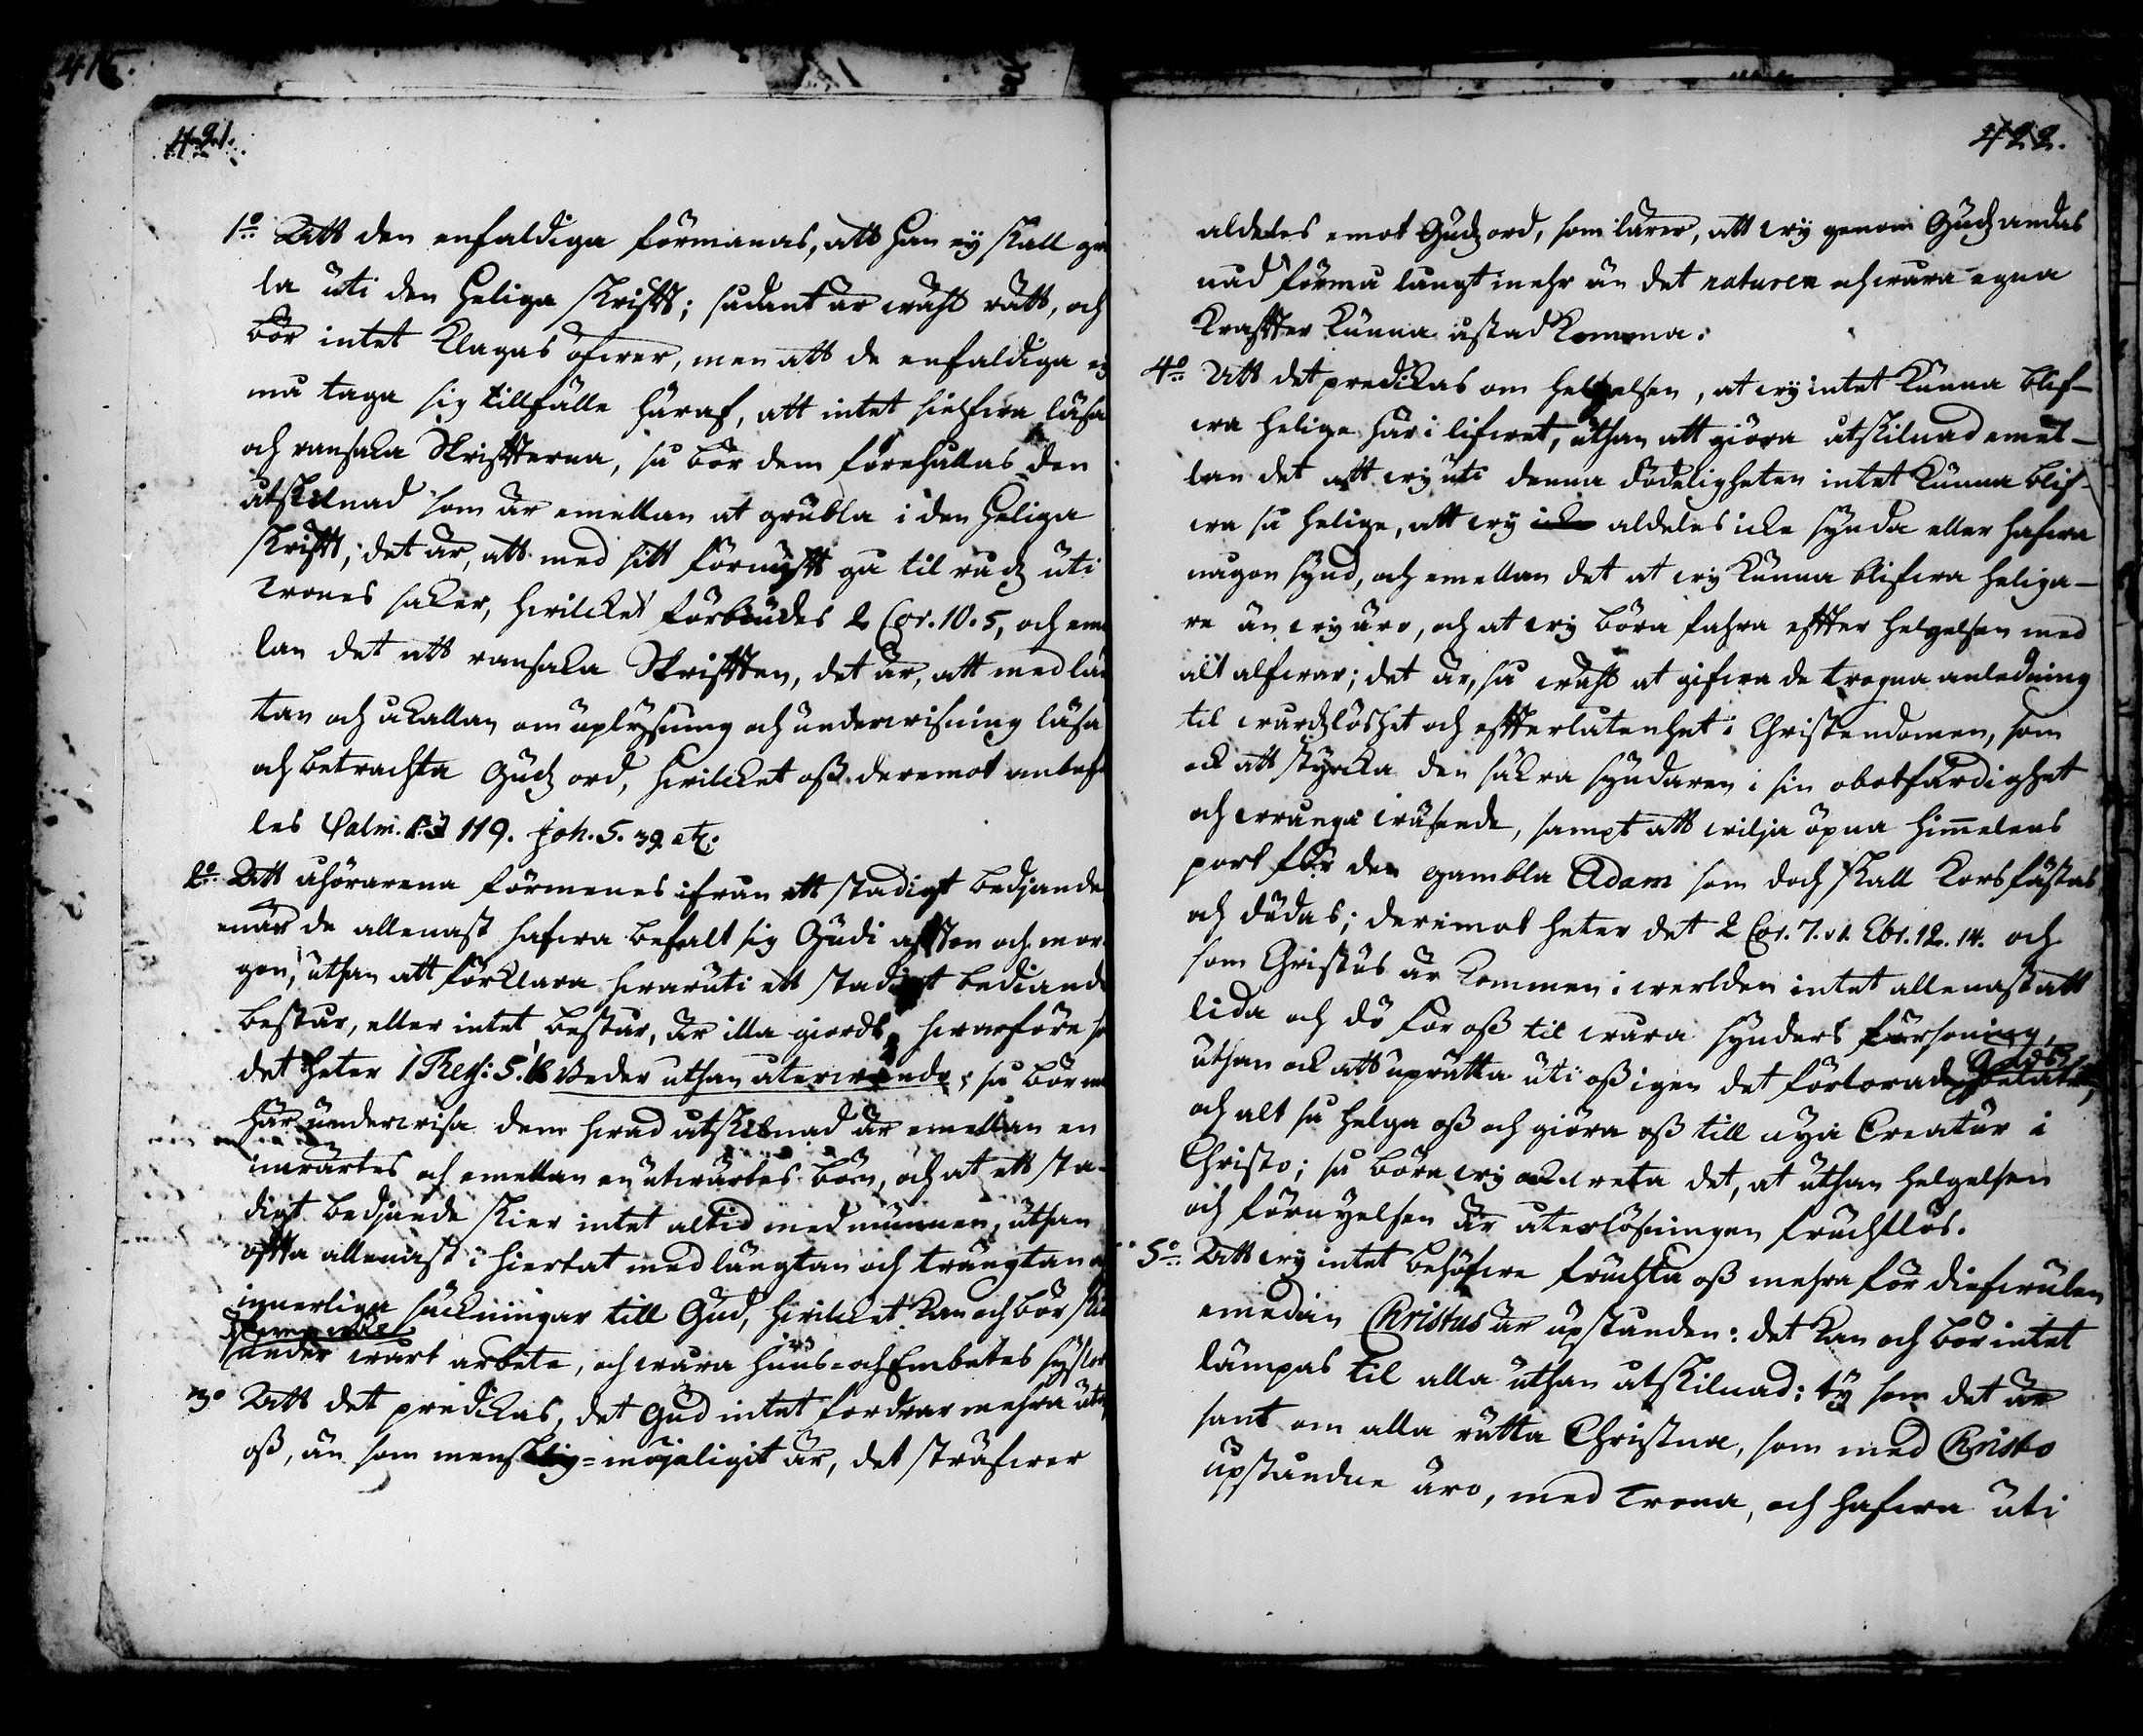 421.
1:o Att den enfaldiga förmanas, att han ey skall gru
la uti den Heliga skrifft; sådant är wähl rätt, och
bör intet klagas öfwer, men att de enfaldiga ey
må taga sig tillfälle häraf, att intet sielfwa läsa
och ransaka Skriffterna, så bör dem förehållas den
åtskilnad som är emellan at grubla i den Heliga
skrifft, det är, att med sitt förnufft gå til rådz uti
trones saker, hwilcket förbiudes 2 Cor. 10. 5, och eme
lan det att ransaka Skrifften, det är, att med län
tan och åkallan om uplysning och underwisning läsa
och betrachta Gudz ord, hwilcket oss deremot anbef
les Psalm. 119. Joh. 5. 39 etc.
2:o Att åhörarena förmenes ifrån ett stadigt bedjande
enär de allenast hafwa befalt sig Gudi affton och mor-
gon, uthan att förklara hwaruti ett stadigt bediande
består, eller intet består, är illa giordt, hwarföre
det heter 1 Thess: 5. Beder uthan återwändo; så bör
här underwisa dem hwad åtskilnad är emellan en
inwärtes och emellan en utwärtes bön, och at ett sta-
digt bedjande skier intet altid med munnen, uthan
offta allenast i hiertat med längtan och trångtan
innerliga suckningar till Gud, hwilcket kan och bör skie
jämwähl
under wårt arbete, och wåra huus- och Embetes sysslor
3:o Att det predikas, det Gud intet fordrar mehra utaf
oss, än som mensklig-möjeligit är, det sträfwer
422.
aldeles emot Gudz ord, som lärer, att wij genom Gudz andas
nåd förmå långt mehr än det naturen och wåra egna
kraffter kunna åstad komma.
4:o Att det predikas om helgelsen, at wij intet kunna blif-
wa helige här i lifwet, uthan att giöra åtskilnad emel-
lan det att wij uti denna dödeligheten intet kunna blif-
wa så helige, att wij aldeles icke synda eller hafwa
någon synd, och emellan det at wij kunna blifwa heliga-
re än wij äro, och at wij böra fahra effter helgelsen med
alt alfwar; det är, så wähl at gifwa de trogna anledning
til wårdzlöshet och effterlåtenhet i Christendomen, som
ock att styrcka den säkra syndaren i sin obotfärdighet
och wrånga wäsende, sampt att wilja öpna himmelens
port för den gambla Adam som doch skall korsfästas
och dödas; deremot heter det 2 Cor. 7. v1. Ebr. 12. 14. och
som Christus är kommen i werlden intet allenast att
lida och dö för oss til wåra synders försoning,
uthan ock att uprätta uti oss igen det förlorade Gudz belätet,
och alt så helga oss och giöra oss till nya Creatur i
Christo; så böra wij ock weta det, at uthan helgelsen
och förnyelsen är återlösningen fruchtlös.
5:o Att wij intet behöfwe fruchta oss mehra för diefwulen
emedan Christus är upstånden: det kan och bör intet
lämpas til alla uthan åtskilnad: ty som det är
sant om alla rätta Christna, som med Christo
upståndne äro, med trona, och hafwa uti